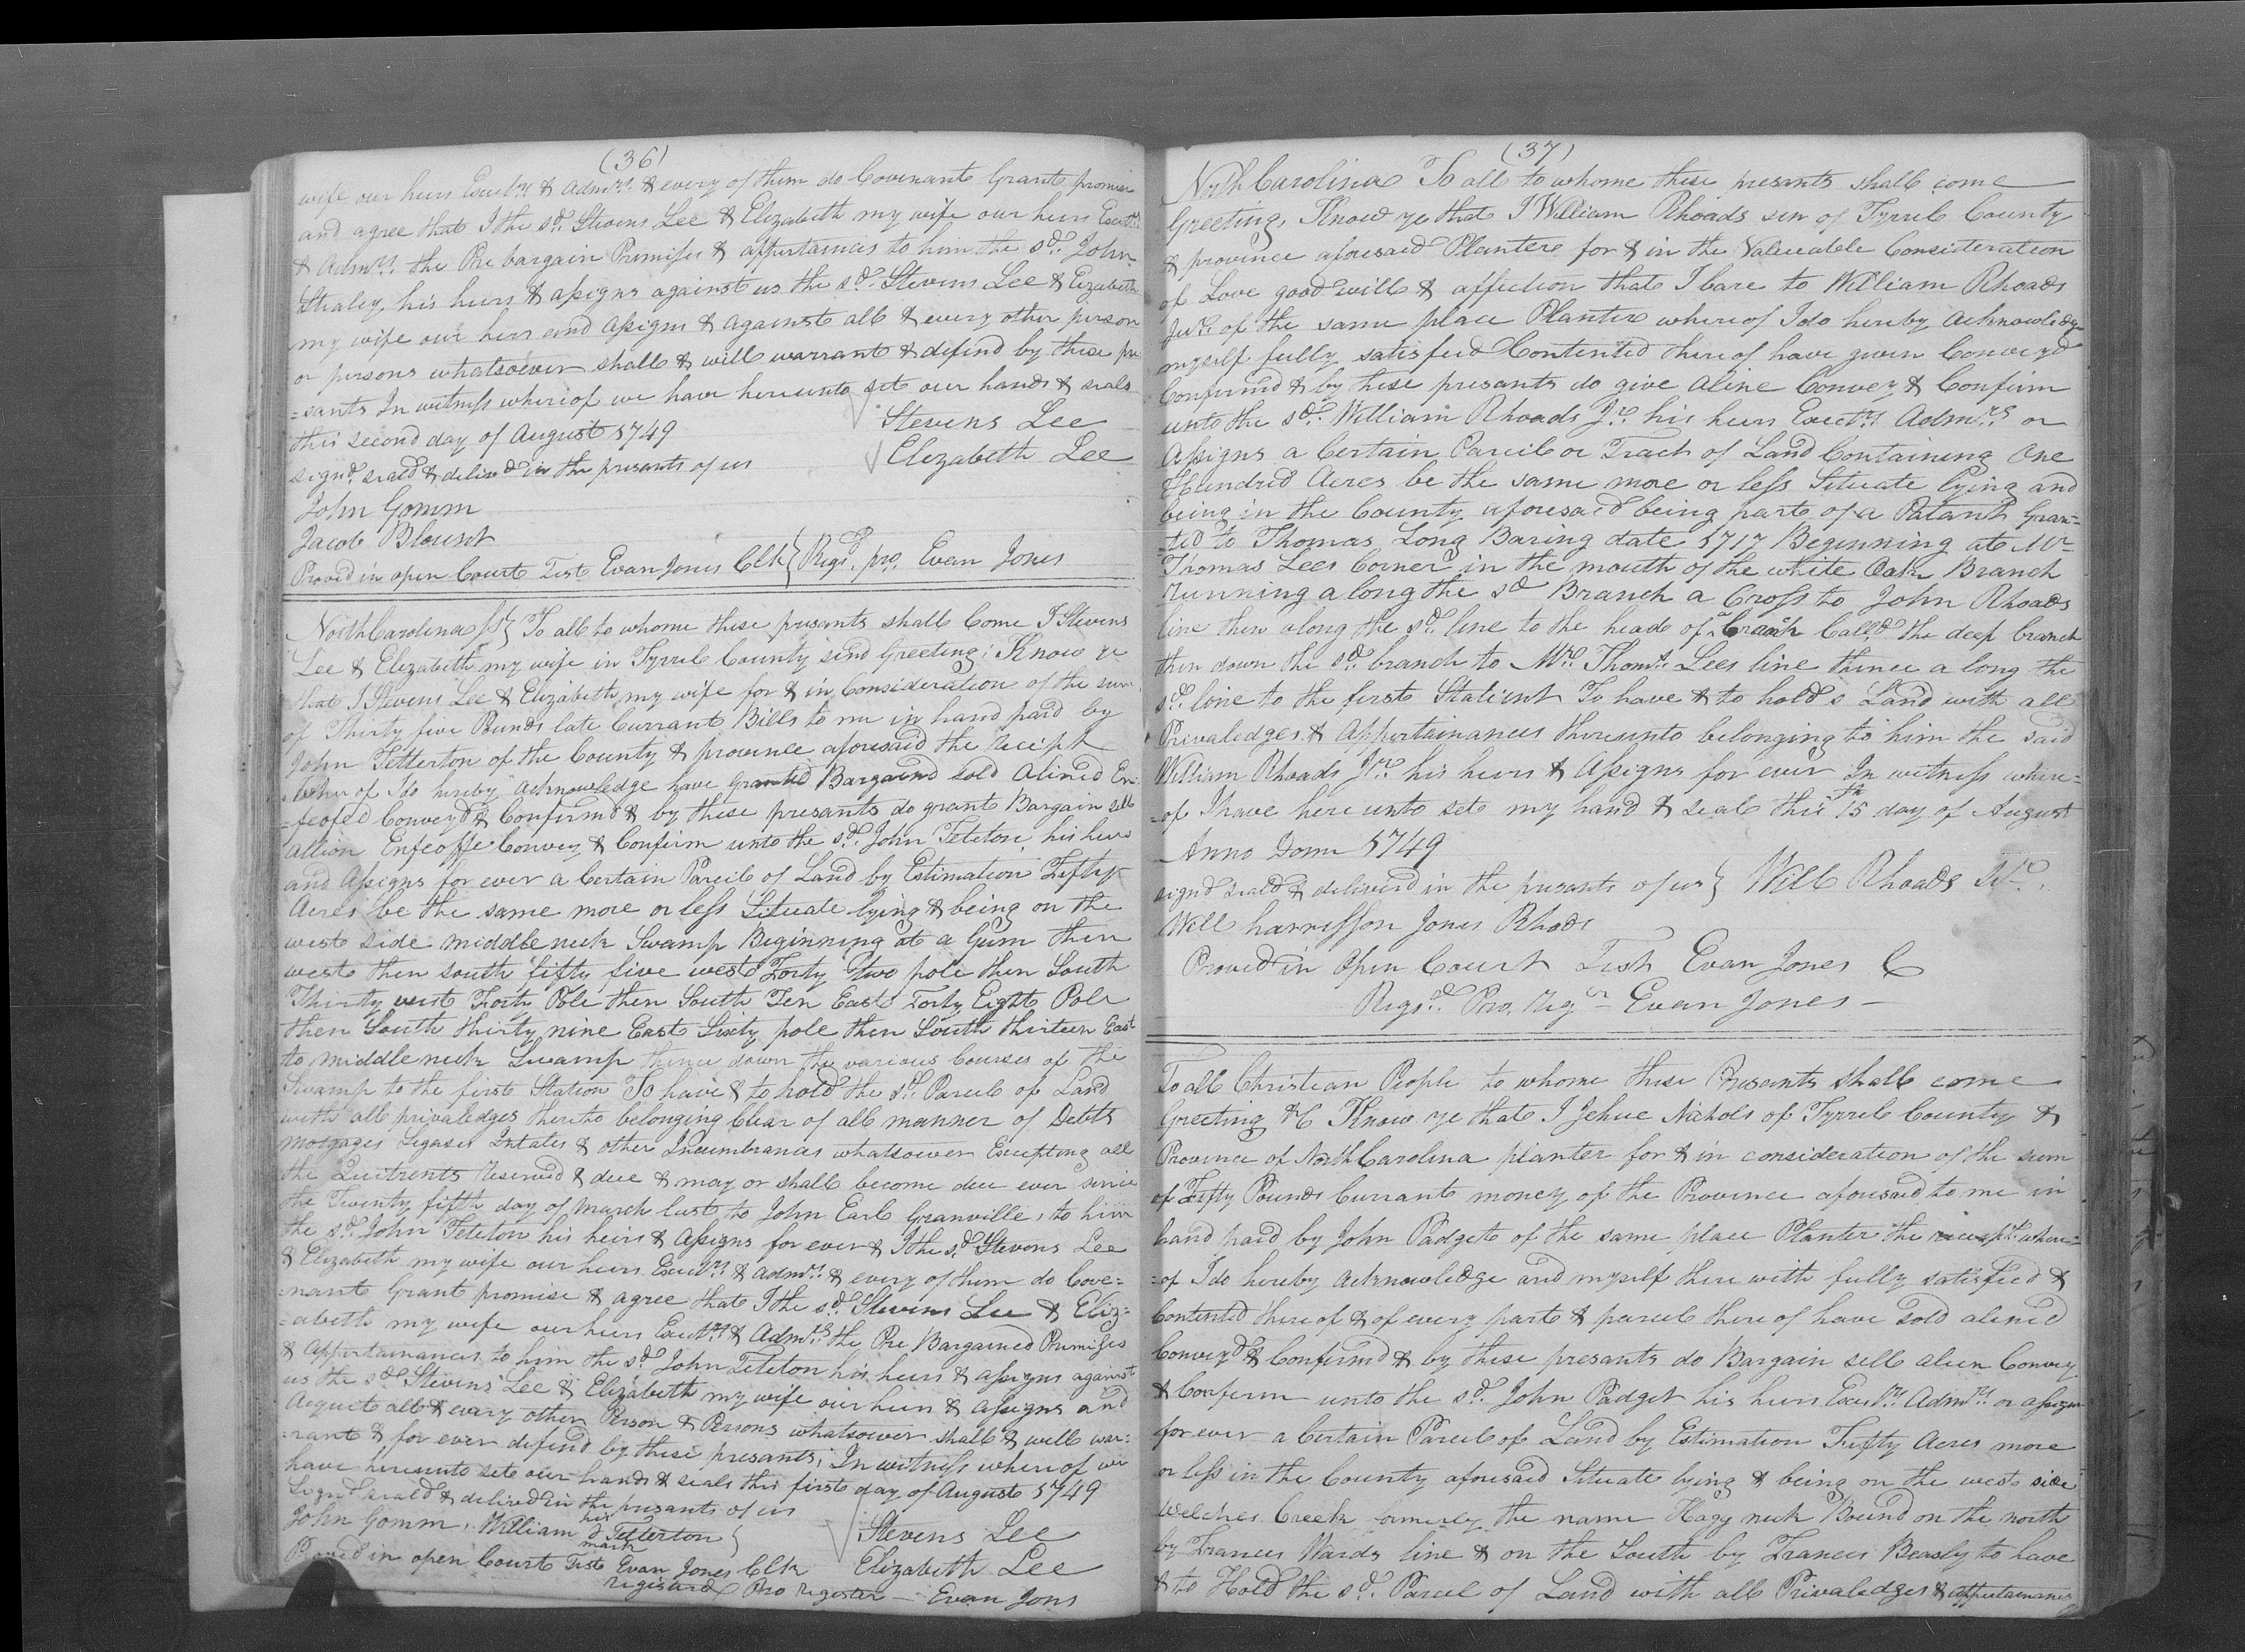 (36)
wife our heirs Execut^rs & Adm^rs & every of them do Covenant Grant promise
and agree that I the s^d Stevens Lee & Elizabeth my wife our heirs Execut^rs
& Adm^rs the Pre bargain Premises & appertainces to him the s^d John
Straley his heirs & assigns against us the s^d Stevens Lee & Elizabeth
my wife our heirs and assigns & against all & every other person
or persons whatsoever shall & will warrant & defend by these pre
=sants In witness whereof we have hereunto set our hands & seals
this second day of August 1749
sign^d seald & deliv^d in the presants of us
Stevens Lee
Elizabeth Lee
John Gomm
Jacob Blount
Proved in open Court Test Evan Jones Clk } Regs^d pro. Evan Jones
North Carolina ss } To all to whome these presants shall Come I Stevens
Lee & Elizabeth my wife in Tyrrel County send Greeting: Know ye
that I Stevens Lee & Elizabeth my wife for & in Consideration of the sum
of Thirty five Pounds late Currant Bills to me in hand paid by
John Tetterton of the County & province aforesaid the Recipt
wher of I do hereby acknowledge have Granted Bargaind sold Alined En=
=feofed Convey^d & Confirmd & by these presants do grant Bargain sell
allion Enfeoffe Convey & Confirm unto the s^d John Teteton his heirs
and Assigns for ever a Certain Parcil of Land by Estimation Fifty
Acres be the same more or less Situate lying & being on the
west side middle neck Swamp Beginning at a Gum then
west then south fifty five west Forty two pole then South
Thirty west Forty Pole then South Ten East Forty Eight Pole
then South thirty nine East Sixty pole then South thirteen East
to middle neck Swamp thence down the various Courses of the
Swamp to the first Station To have & to hold the s^d Parcel of Land
with all privaledges thereto belonging Clear of all manner of Debts
Motgages Legases Intales & other Incumbrances whatsoever Excepting all
the Quitrents reserved & due & may or shall become due ever since
the Twenty fifth day of March last to John Earl Granville, to him
the s^d John Teteton his heirs & Assigns for ever & I the s^d Stevens Lee
& Elizabeth my wife our heirs Execut^rs & Adm^rs & every of them do Cove=
=nant Grant promise & agree that I the s^d Stevens Lee & Eliz=
=abeth my wife our heirs Execut^rs & Adm^rs the Pre Bargained Premises
& Appertainances to him the s^d John Teteton his heirs & assigns against
us the s^d Stevens Lee & Elizabeth my wife our heirs & assigns and
Against all & every other Person & Persons whatsoever shall & will war=
=rant & for ever defend by these presants; In witness where of we
have hereunto sete our hands & seals this first day of August 1749
Signd seald & delivd in the presants of us
his
John Gomm, William d Tetterton }
mark
Stevens Lee
Proved in open Court Test Evan Jones Clk
Elizabeth Lee
Registerd Pro Register — Evan Jons
(37)
North Carolina To all to whome these presants shall come
Greeting, Know ye that I William Rhoads sen of Tyrrel County
& province aforesaid Planter for & in the Valueable Consideration
of Love good will & affection that I bare to William Rhoads
Ju^r of the same place Planter whereof I do hereby Acknowledge
myself fully satisfied Contented thereof have given Conveyd
Confirmd & by these presants do give Aline Convey & Confirm
unto the s^d William Rhoads J^r his heirs Execut^rs Adm^rs or
Assigns a Certain Parcil or Tract of Land Containing One
Hundred Acres be the same more or less Situate lying and
being in the County aforesaid being part of a Patant Gran=
=ted to Thomas Long Baring date 1717 Beginning at Mr
Thomas Lees Corner in the mouth of the white Oak Branch
running along the s^d Branch a Cross to John Rhoads
line then along the s^d line to the heade of a branch Call^d the deep branch
then down the s^d branch to Mr Thom^s Lees line thence a long the
s^d line to the first Station To have & to hold s^d Land with all
Privaledges & Appertainances thereunto belonging to him the said
William Rhoads J^r his heirs & Assigns for ever In witness where=
=of I have here unto sete my hand & seale this 15^th day of August
Anno Dom 1749
signd seald & deliverd in the presants of us } Will Rhoads
Will harrisson Jones Rhods
Proved in Open Court Test Evan Jones C
Regs^d Pro. Reg^r — Evan Jones —
To all Christian People to whome these Presants shall come
Greeting &C Know ye that I Jehue Nichols of Tyrrel County &
Province of North Carolina planter for & in consideration of the sum
of Fifty Pounds Currant money of the Province aforesaid to me in
hand paid by John Padget of the same place Planter the receipt where=
=of I do hereby Acknowledge and myself there with fully satisfied &
Contented there of & of every part & parcel there of have sold aliened
Convey^d & Confirmd & by these presants do Bargain sell alien Convey
& Confirm unto the s^d John Padget his heirs Execut^rs Adm^rs or assigns
for ever a Certain Parcel of Land by Estimation Fifty Acres more
or less in the County aforesaid Situate lying & being on the west side
Welches Creek formerly the name Hagy neck Bound on the north
by Frances Wards line & on the South by Frances Beasly to have
& to Hold the s^d Parcel of Land with all Privaledges & appertainances